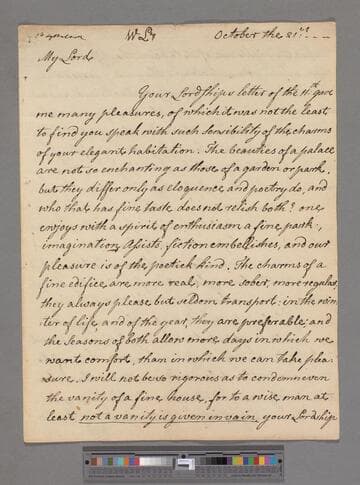 W L4 October the 21st. --
My Lord
Your Lordships letter of the 11th gave
me many pleasures, of which it was not the least
to find you speak with such sensibility of the charms
of your elegant habitation. The beauties of a palace
are not so enchanting as those of a garden or park,
but they differ only as eloquence and poetry do, and
who that has fine taste does not relish both? one
enjoys with a spirit of enthusiasm a fine park,
imagination assists, fiction embellishes, and our
pleasure is of the poetick kind. The charms of a
fine edifice are more real, more sober, more regular,
they always please but seldom transport; in the win
ter of life, and of the year, they are preferable; and
the seasons of both allow more days in which we
want comfort, than in which we can take plea-
-sure. I will not be so rigorous as to condemn even
the vanity of a fine house, for to a wise man at
least not a vanity is given in vain, your Lordship